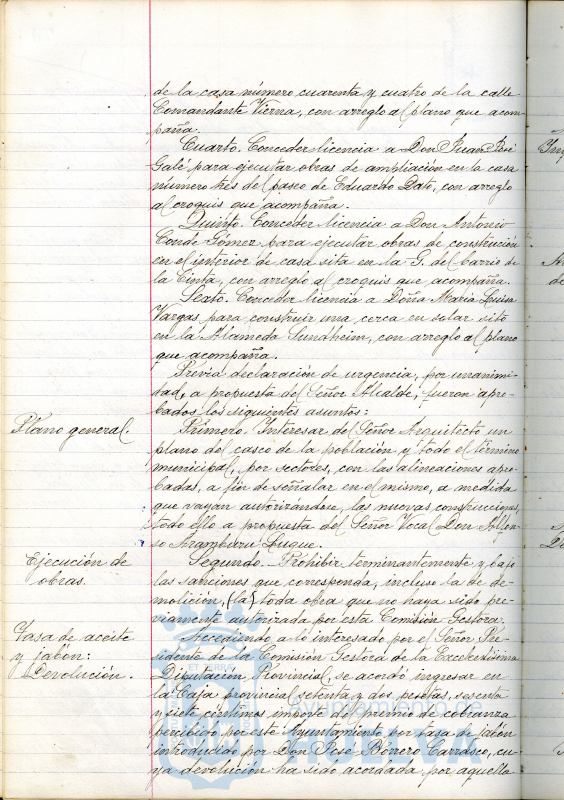 de la casa número cuarenta y cuatro de la calle
Comandante Vierna, con arreglo al plano que acom-
paña.
Cuarto. Conceder licencia a Don Juan José
Galé para ejecutar obras de ampliación en la casa
número tres del paseo de Eduardo Dato, con arreglo
al croquis que acompaña.
Quinto. Conceder licencia a Don Antonio
Conde Gómez para ejecutar obras de construción
en el interior de casa sita en la G. del barrio de
la Cinta, con arreglo al croquis que acompaña.
Sexto. Conceder licencia a Doña María Luisa
Vargas para construir una cerca en solar sito
en la Alameda Sundheim, con arreglo al plano
que acompaña.
Previa declaración de urgencia, por unanimi-
dad, a propuesta del Señor Alcalde, fueron apro-
bados los siguientes asuntos:
Plano general.
Primero. Interesar del Señor Arquitecto un
plano del casco de la población y todo el término
municipal, por sectores, con las alineaciones apro-
badas, a fin de señalar en el mismo, a medida
que vayan autorizándose, las nuevas construcciones,
todo ello a propuesta del Señor Vocal Don Alfon-
so Aramburu Luque.
Ejecución de
obras.
Segundo. Prohibir terminantemente y bajo
las sanciones que corresponda, incluso la de de-
molición, (la) toda obra que no haya sido pre-
viamente autorizada por esta Comisión Gestora.
Tasa de aceite
y jabón:
Devolución.
Accediendo a lo interesado por el Señor Pre-
sidente de la Comisión Gestora de la Excelentísima
Diputación Provincial, se acordó ingresar en
la Caja provincial setenta y dos pesetas, sesenta
y siete céntimos importe del premio de cobranza
percibido por este Ayuntamiento por tasa de jabón
introducido por Don José Borrero Carrasco, cu-
ya devolución ha sido acordada por aquella
Ayuntamiento de
HUELVA